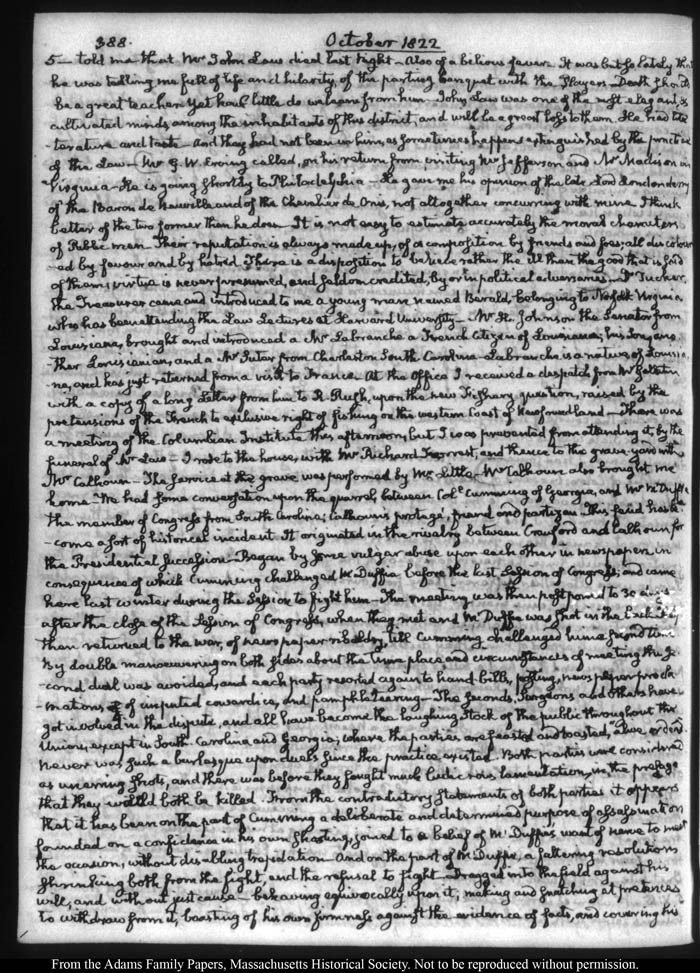 388.
October 1822
5 — told me that Mr John Law died last night — Also of a bilious fever. It was but so lately that
he was telling me full of life and hilarity of the parting banquet with the Players — Death should
be a great teacher, yet how little do we learn from him. John Law was one of the most elegant, &
cultivated minds among the inhabitants of this district, and will be a great loss to them. He had lite
-rature and taste — And they had not been in him, as sometimes happens extinguished by the practice
of the Law — Mr G. W. Erving called, on his return from visiting Mr Jefferson and Mr Madison in
Virginia — He is going shortly to Philadelphia — He gave me his opinion of the late Lord Londonderry
of the Baron de Neuville and of the Chevalier de Onis, not altogether concurring with mine. I think
better of the two former than he does — It is not easy to estimate accurately the moral characters
of Public men. Their reputation is always made up, of a composition by friends and foes; all discolour
-ed by favour and by hatred. There is a disposition to believe rather the ill than the good that is said
of them; virtue is never presumed, and seldom credited, by or in political adversaries — Dr Tucker,
the Treasurer came and introduced to me a young man named Berald, belonging to Norfolk Virginia
who has been attending the Law Lectures at Harvard University — Mr H. Johnson the Senator from
Louisiana, brought and introduced a Mr Labranche a French Citizen of Louisiana; his Son, ano
ther Louisianian, and a Mr Tutor from Charleston South Carolina — Labranche is a native of Louisia
na, and has just returned from a visit to France. At the Office I received a despatch from Mr Gallatin
with a copy of a long Letter from him to R. Rush, upon the new Fishery question, raised by the
pretensions of the French to exclusive right of fishing on the western Coast of Newfoundland — There was
a meeting of the Columbian Institute this afternoon, but I was prevented from attending it, by the
funeral of Mr Law — I rode to the house, with Mr Richard Forrest, and thence to the grave-yard with
Mr Calhoun — The service at the grave was performed by Mr Little. Mr Calhoun also brought me
home. We had some conversation upon the quarrel, between Col. Cumming of Georgia, and Mr McDuffie
the member of Congress from South Carolina; Calhoun's protegé, friend and partizan. This feud has be
-come a sort of historical incident. It originated in the rivalry between Crawford and Calhoun for
the Presidential succession — Began by some vulgar abuse upon each other in newspapers, in
consequence of which Cumming challenged McDuffie before the last session of Congress; and came
here last winter during the Session to fight him — The meeting was then postponed to 30 days
after the close of the Session of Congress, when they met and McDuffie was shot in the back; they
then returned to the war, of newspaper ribaldry, till Cumming challenged him a second time
By double manoeuvering on both sides about the time place and circumstances of meeting the se
cond duel was avoided, and each party resorted again to hand-bills, posting, newspaper procla
-mations of imputed cowardice, and pamphleteering — The seconds, Surgeons and others have
got involved in the dispute, and all have become the laughing stock of the public throughout the
Union, except in South-Carolina and Georgia; where the parties are feasted and toasted, alive or dead.
Never was such a burlesque upon duels since the practice existed. Both parties were considered
as unerring shots, and there was before they fought much ludicrous lamentation, in the presage
that they would both be killed. From the contradictory statements of both parties it appears
that it has been on the part of Cumming a deliberate and determined purpose of assassination
founded on a confidence in his own shooting, joined to a belief of McDuffie's want of nerve to meet
the occasion, without disabling trepidation. And on the part of McDuffie, a faltering resolution
shrinking both from the fight, and the refusal to fight — Dragged into the field against his
will, and without just cause — behaving equivocally upon it; making and snatching at pretences
to withdraw from it, boasting of his own firmness against the evidence of facts, and covering his
From the Adams Family Papers, Massachusetts Historical Society. Not to be reproduced without permission.